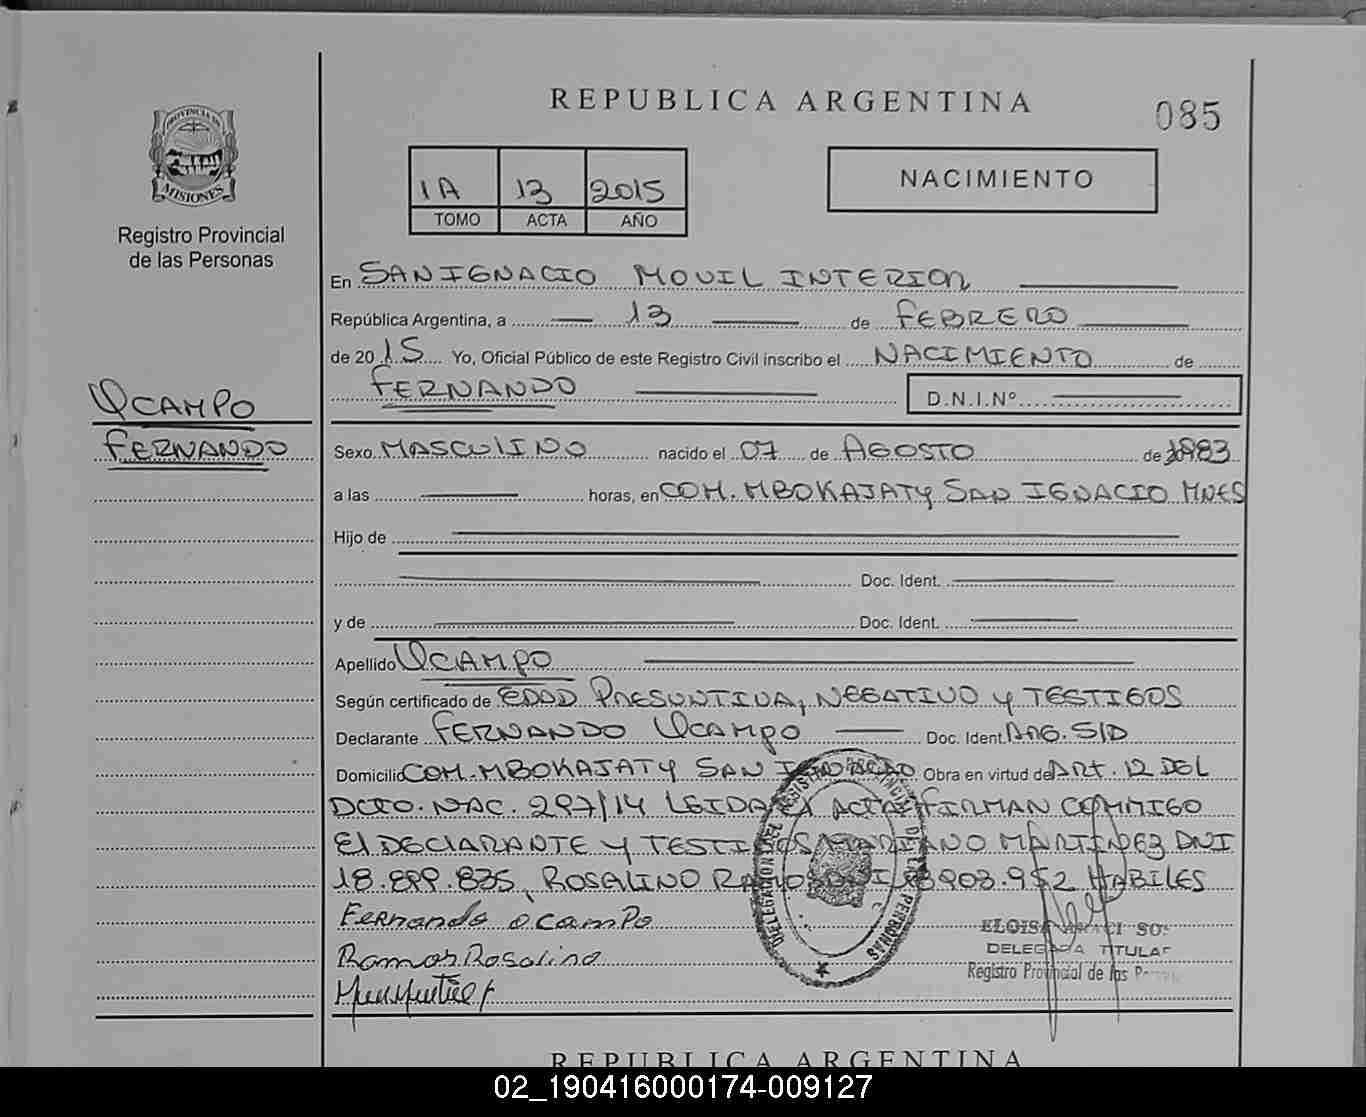 REPUBLICA ARGENTINA
085
PROVINCIA DE
MISIONES
Registro Provincial
de las Personas
1A 13 2015
TOMO ACTA AÑO
NACIMIENTO
En SAN IGNACIO MOVIL INTERIOR
República Argentina, a 13 de FEBRERO
de 2015 Yo, Oficial Público de este Registro Civil inscribo el NACIMIENTO de
FERNANDO D.N.I.Nº
OCAMPO
FERNANDO
Sexo MASCULINO nacido el 07 de AGOSTO de 1983
a las horas, en COM. MBOKAJATY SAN IGNACIO MNES
Hijo de
Doc. Ident.
y de Doc. Ident.
Apellido OCAMPO
Según certificado de EDAD PRESUNTIVA, NEGATIVO y TESTIGOS
Declarante FERNANDO OCAMPO Doc. Ident. ARG. S/D
Domicilio COM. MBOKAJATY SAN IGNACIO Obra en virtud de ART. 12 DEL
DCTO. NAC. 297/14 LEIDA EL ACTA FIRMAN COMMIGO
El DECLARANTE Y TESTIGOS MARIANO MARTINEZ DNI
18.899.835, ROSALINO RAMOS DNI HABILES
Fernando ocampo
Ramos Rosalino
DELEGACION DEL REGISTRO PROVINCIAL DE LAS PERSONAS
ELOISA
DELEGADA TITULAR
Registro Provincial de las
REPUBLICA ARGENTINA
02_190416000174-009127